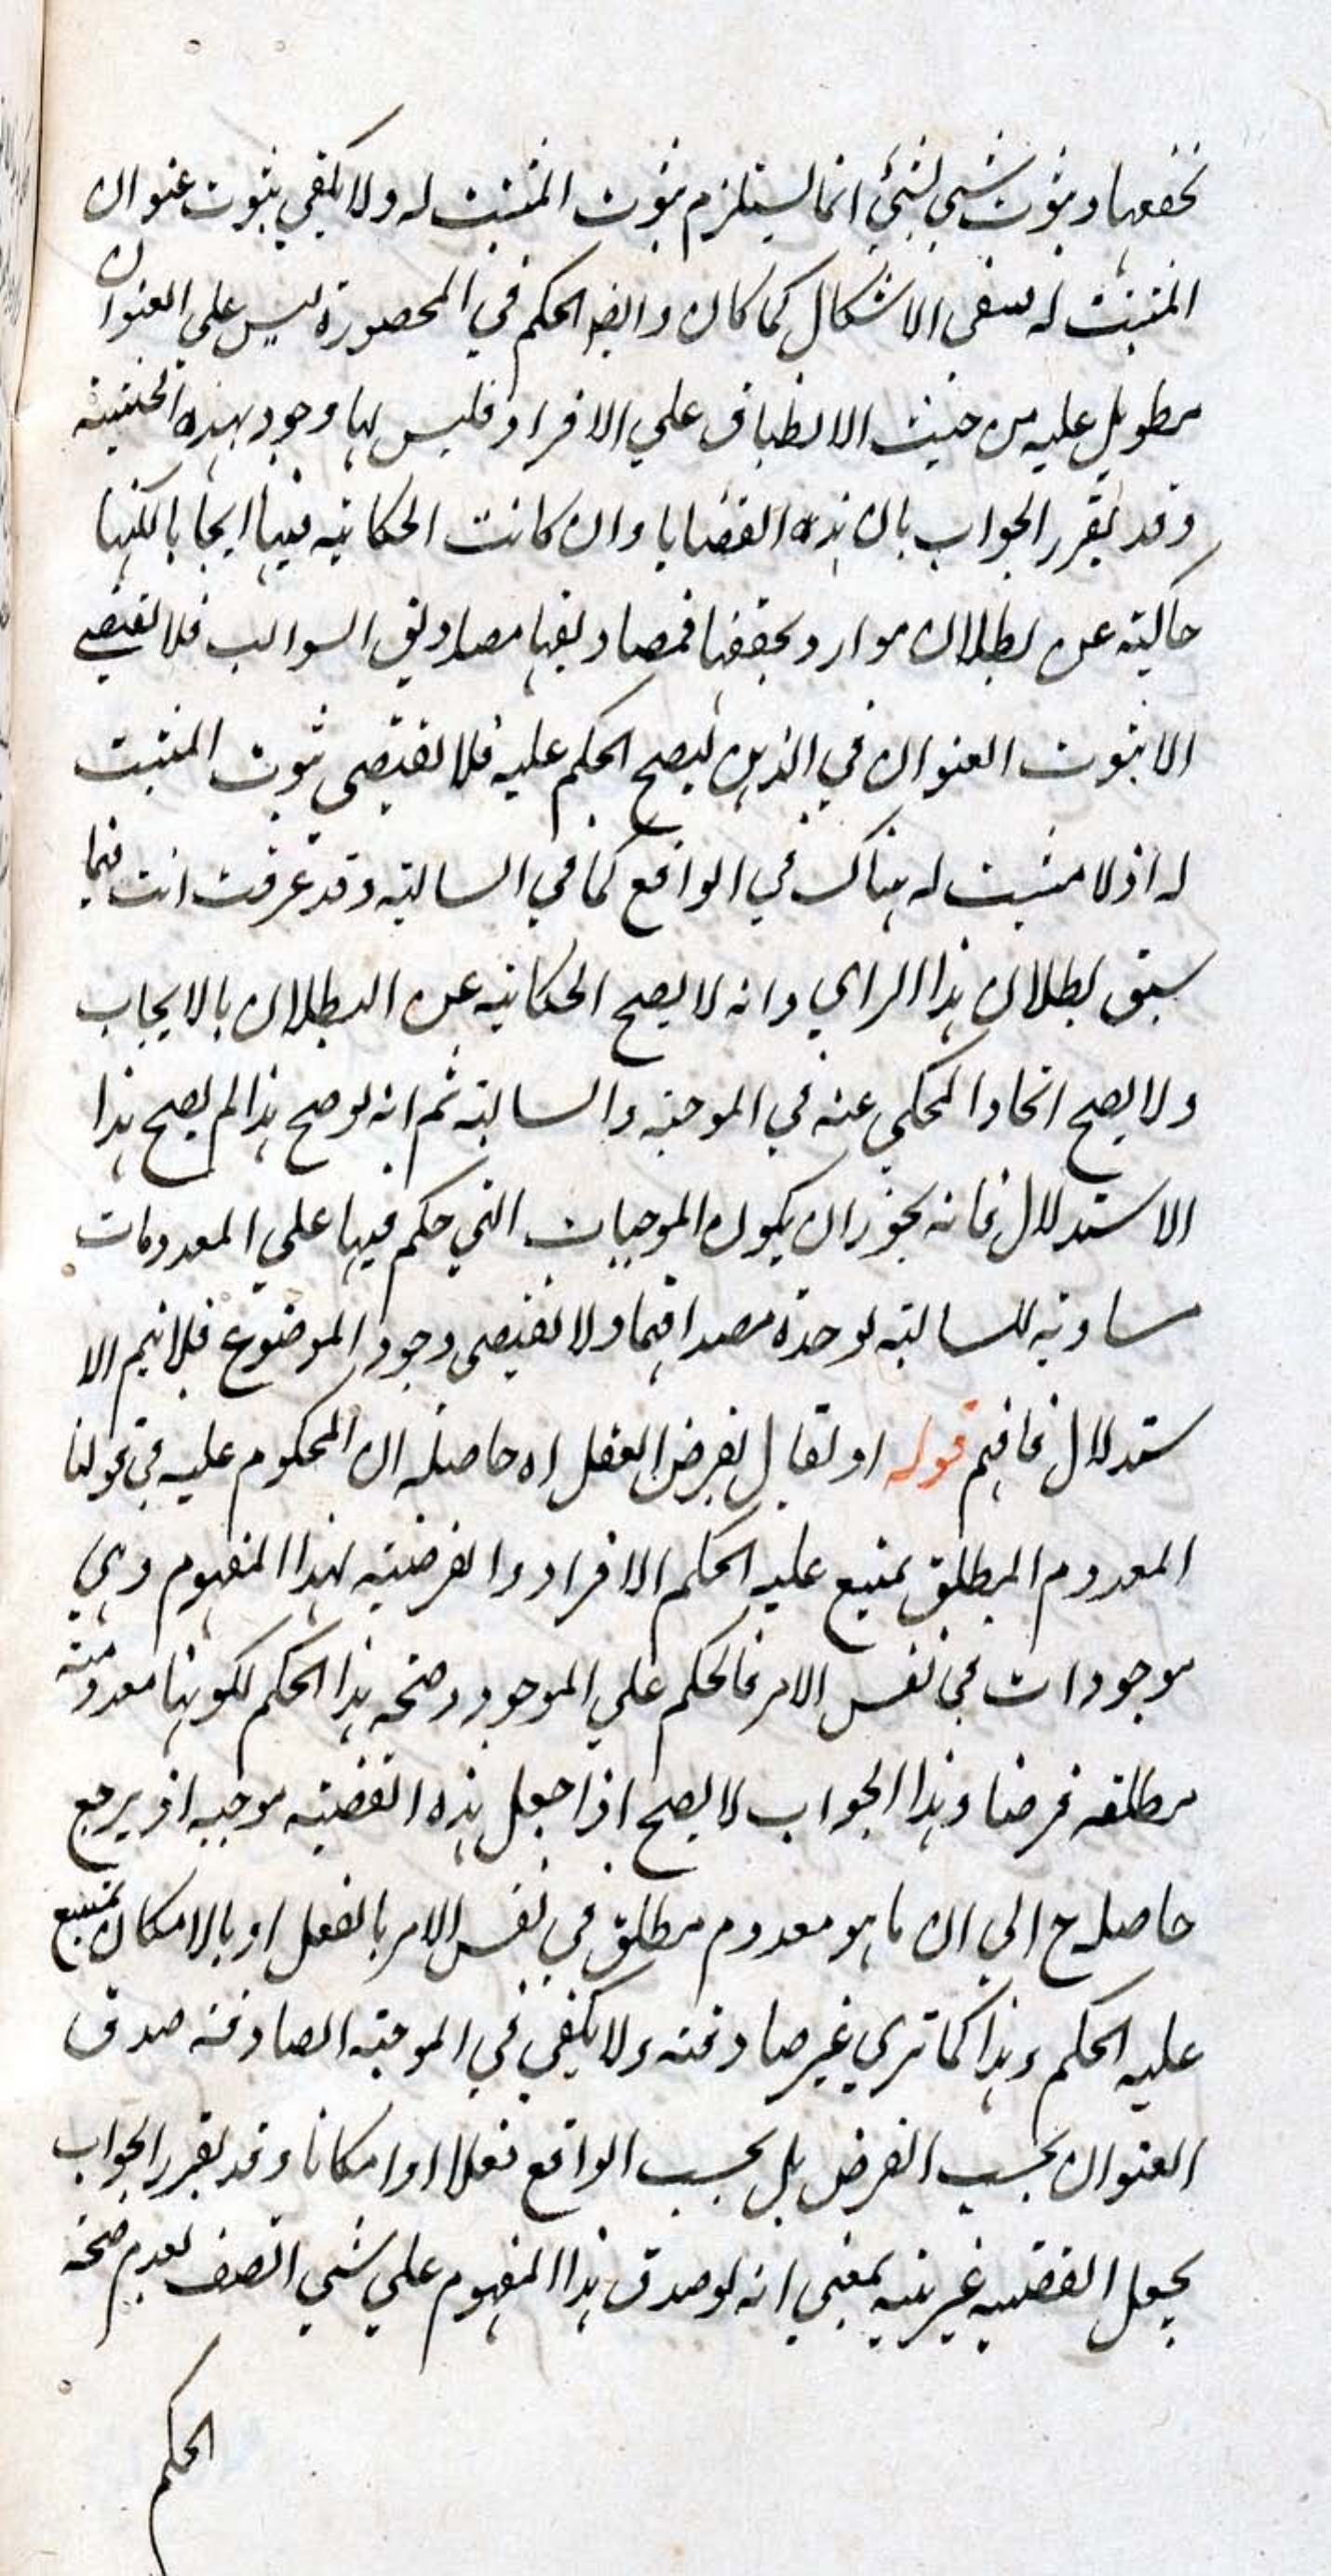 تحققها وثبوت شيء لشيء انما يستلزم ثبوت المثبت له ولا يكفي ثبوت عنوان
المثبت له فبقي الاشكال كما كان وايضا الحكم في المحصورة ليس علي العنوان
مطو بل عليه من حيث الانطباق علي الافراد فليس لها وجود بهذه الحيثية
وقد يقرر الجواب بان هذه القضايا وان كانت الحكاية فيها ايجابا لكنها
حاكية عن بطلان موارد تحققها فمصاديقها مصاديق السوالب فلا تقتضي
الا ثبوت العنوان في الذهن ليصح الحكم عليه فلا تقتضي ثبوت المثبت
له اذ لا مثبت له هناك في الواقع كما في السالبة وقد عرفت انت فيما
سبق بطلان هذا الراي وانه لا يصح الحكاية عن البطلان بالايجاب
ولا يصح اتحاد المحكي عنه في الموجبة والسالبة ثم انه لو صح هذا لم يصح هذا
الاستدلال فانه يجوز ان يكون الموجبات التي حكم فيها علي المعدومات
مساوية للسالبة لوحدة مصداقهما ولا تقتضي وجود الموضوع فلا يتم الا
ستدلال فافهم قوله او يقال بفرض العقل اه حاصله ان المحكوم عليه في قولنا
المعدوم المطلق يمتنع عليه الحكم الافراد الفرضية لهذا المفهوم وهي
موجودات في نفس الامر فالحكم علي الموجود وصحة هذا الحكم لكونها معدومة
مطلقة فرضا وهذا الجواب لا يصح اذا جعل هذه القضية موجبة اذ يرجع
حاصله ح الى ان ما هو معدوم مطلق في نفس الامر بالفعل او بالامكان يمتنع
عليه الحكم وهذا كما تري غير صادقة ولا يكفي في الموجبة الصادقة صدق
العنوان بحسب الفرض بل بحسب الواقع فعلا او امكانا وقد يقرر الجواب
بجعل القضية غير بتية بمعني انه لو صدق هذا المفهوم علي شي اتصف بعدم صحة
الحكم